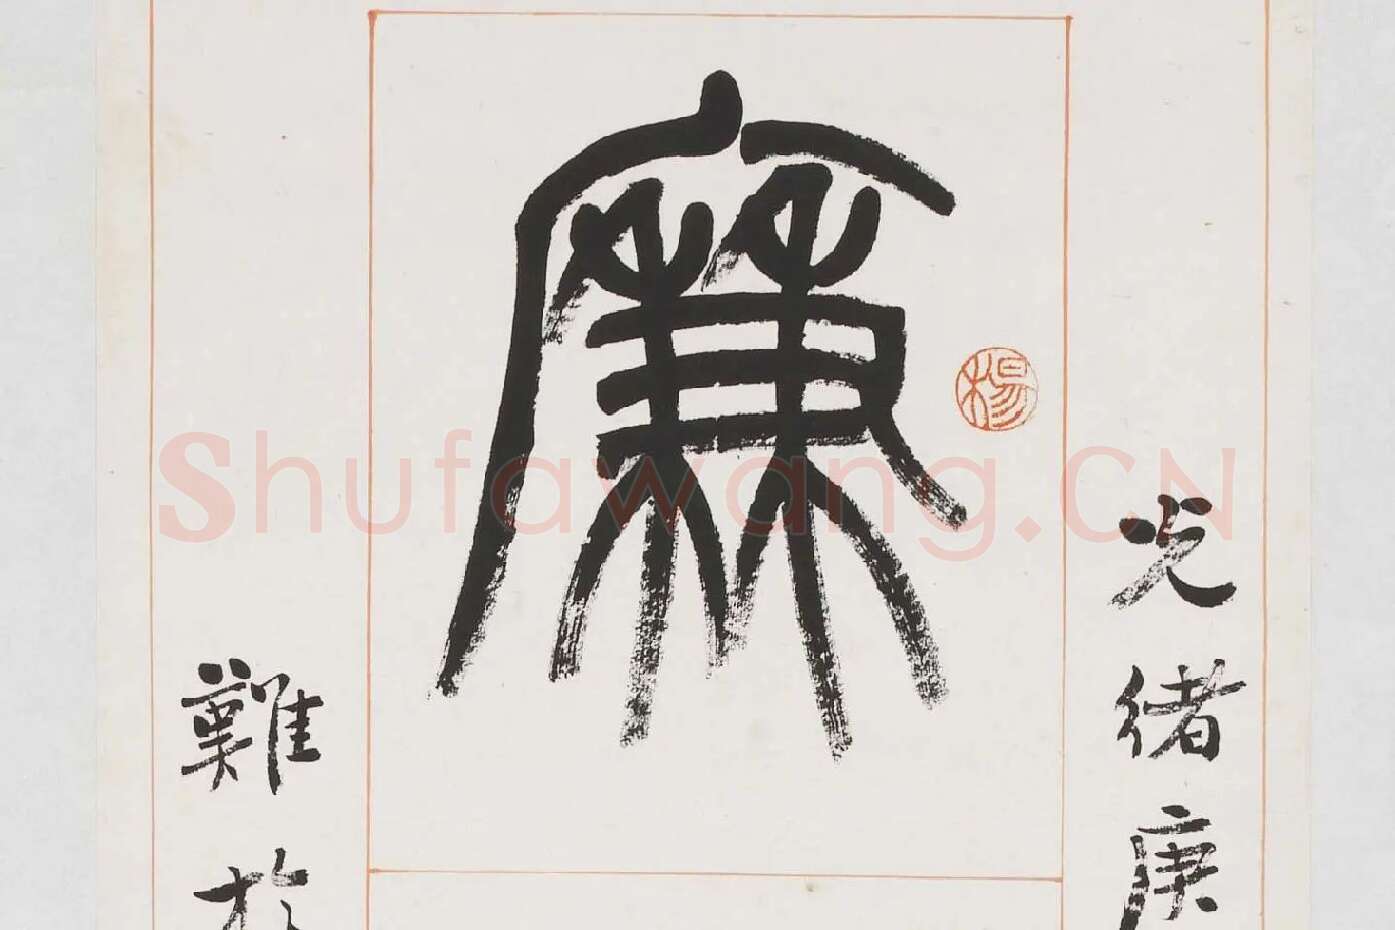 光緒庚
廉
楊
難於
Shufawang.CN